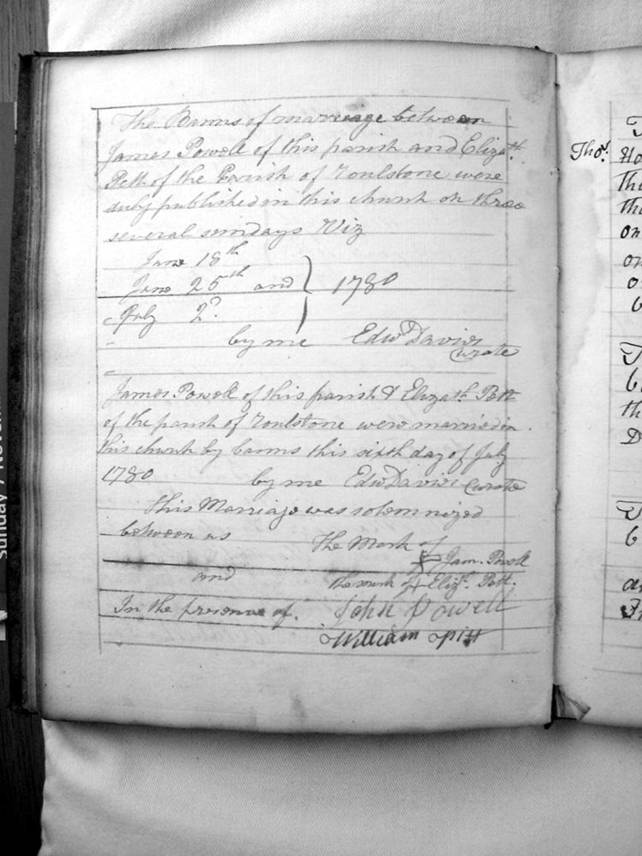 The Banns of marriage between
James Powell of this parish and Elizath.
Pitt of the Parish of Foulstone were
duly published in this church on three
several sundays Viz
June 18th
June 25th and } 1780
July 2d
by me Edwd Davies
Curate
James Powell of this parish & Elizath. Pitt
of the parish of Foulstone were married in
this church by banns this sixth day of July
1780 by me Edwd Davies Curate
This Marriage was solemnized
between us The Mark of
Jam. Powell
and the mark of + Elizh. Pitt.
In the presence of. John Powell
William Pitt
Tho.s